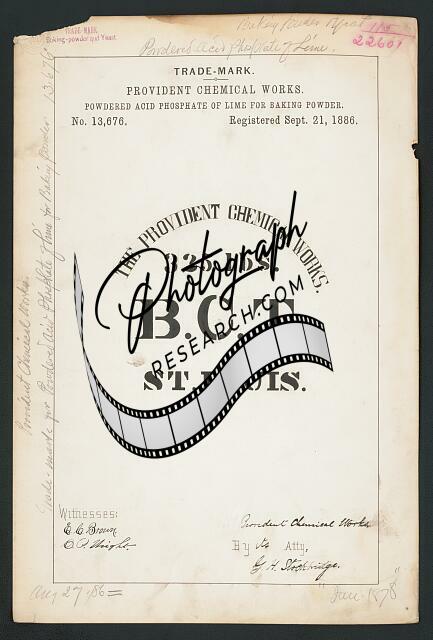 TRADE-MARK.
Baking-powder and Yeast.
Baking Powder
115
22601
Powdered Acid Phosphate of Lime.
TRADE-MARK.
PROVIDENT CHEMICAL WORKS.
POWDERED ACID PHOSPHATE OF LIME FOR BAKING POWDER.
No. 13,676. Registered Sept. 21, 1886.
THE PROVIDENT CHEMICAL WORKS.
Photograph
RESEARCH.COM
ST. LOUIS.
Provident Chemical Works.
Trade-mark for Powdered Acid Phosphate of Lime for Baking Powder 13,676
Witnesses:
E. C. Brown
O. P. Wright.
Provident Chemical Works
By its Atty,
G. H. Stockbridge.
Aug 27, '86 =
"Jan. 1878"